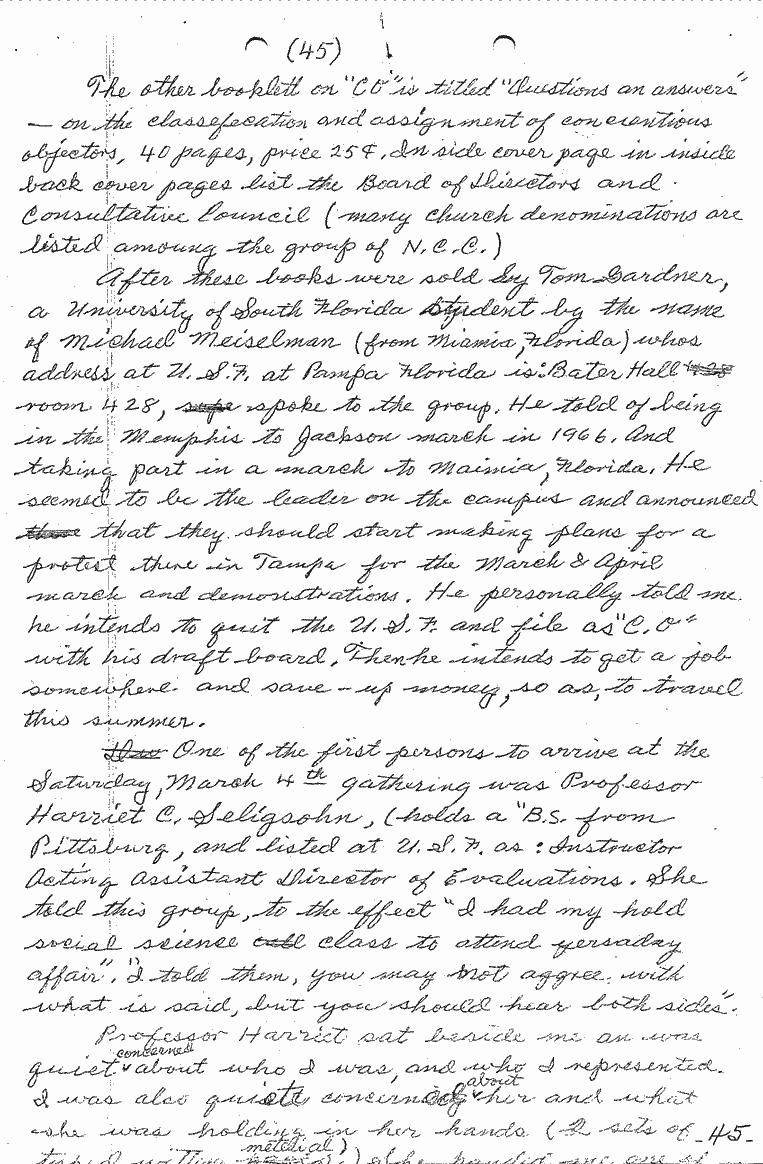 (45)
The other booklett on "CO" is titled "Questions an answers"
— on the classefecation and assignment of concientious
objectors, 40 pages, price 25¢. In side cover page in inside
back cover pages list the Board of Directors and
Consultative Council (many church denominations are
listed amoung the group of N.C.C.)
After these books were sold by Tom Gardner,
a University of South Florida student by the name
of Michael Meiselman (from Miamia, Florida) whos
address at U.S.F. at Pampa Florida is: Bater Hall 428
room 428, spoke to the group. He told of being
in the Memphis to Jackson march in 1966. And
taking part in a march to Maimia, Florida. He
seemed to be the leader on the campus and announced
that they should start making plans for a
protest there in Tampa for the March & April
march and demonstrations. He personally told me
he intends to quit the U.S.F. and file as "C.O"
with his draft board. Then he intends to get a job
somewhere and save-up money, so as, to travel
this summer.
One of the first persons to arrive at the
Saturday, March 4th gathering was Professor
Harriet C. Seligsohn, (holds a "B.S. from
Pittsburg, and listed at U.S.F. as: Instructor
Acting Assistant Director of Evaluations. She
told this group, to the effect "I had my hold
social science call class to attend yersaday
affair". "I told them, you may not aggree with
what is said, but you should hear both sides".
Professor Harriet sat beside me an was
quiet concerned about who I was, and who I represented.
I was also quiett concerning about her and what
she was holding in her hands (2 sets of
-45-
metelial)
She handed me one of